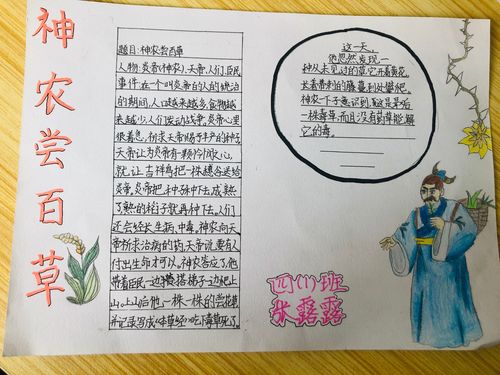 神农尝百草
题目:神农尝百草
人物:炎帝(神农)、天帝、人们、臣民
事件:在一个叫炎帝的人的统治
的期间,人口越来越多,食物越
来越少,人们发动战争。炎帝心里
很着急,祈求天帝赐予丰产的种子,
天帝认为炎帝有一颗怜悯之心,
就让吉祥鸟把一株穗谷送给
炎帝,炎帝把种子种下去,成熟
了熟的稻子就再种下去。人们
还会经长生病,中毒,神农向天
帝祈求治病的药,天帝说要有人
付出生命才可以,神农答应了,他
带着臣民一边搭梯子一边爬上
山。上山后他一株一株的尝花草
并记录写成《本草经》吃了毒草死了。
这一天,
他忽然发现一
种从未见过的草,它开着黄花,
长着带刺的藤蔓到处攀爬。
神农一下子意识到,这是茅厕
一株毒草,而且没有药草能解
它的毒。
四(1)班
张露露